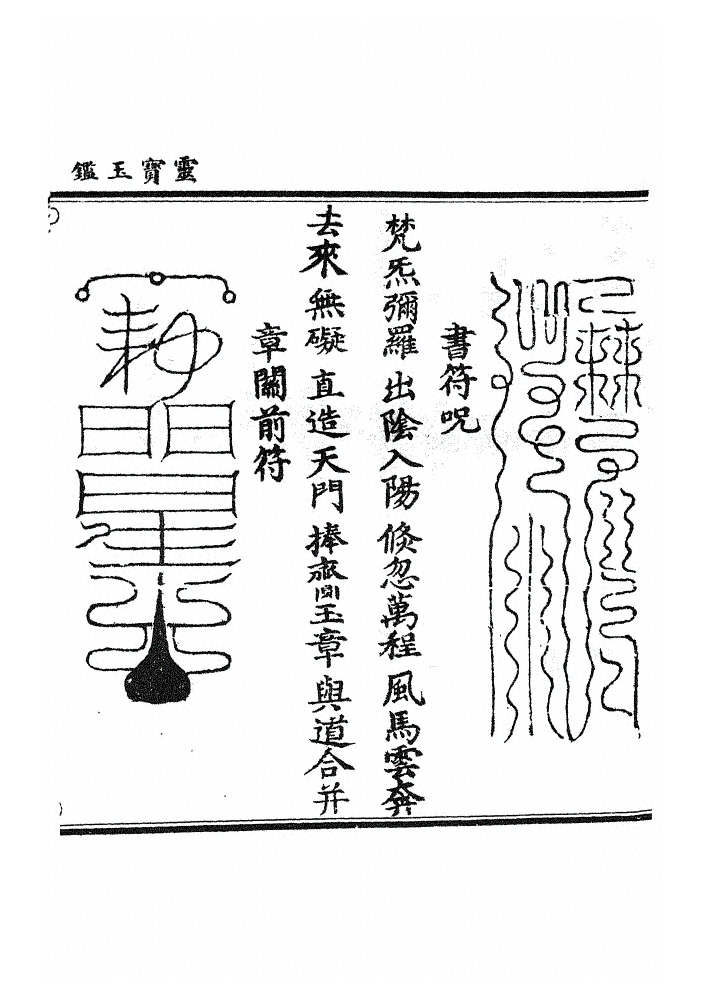 靈寶玉鑑
書符呪
梵炁彌羅出陰入陽倏忽萬程風馬雲奔
去來無礙直造天門捧齎玉章與道合并
章關前符